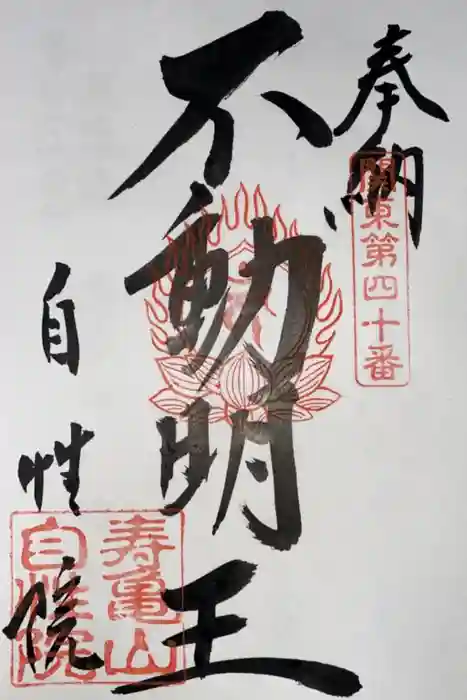 奉納
關東第四十番
不動明王
自性院
寿亀山
自性院